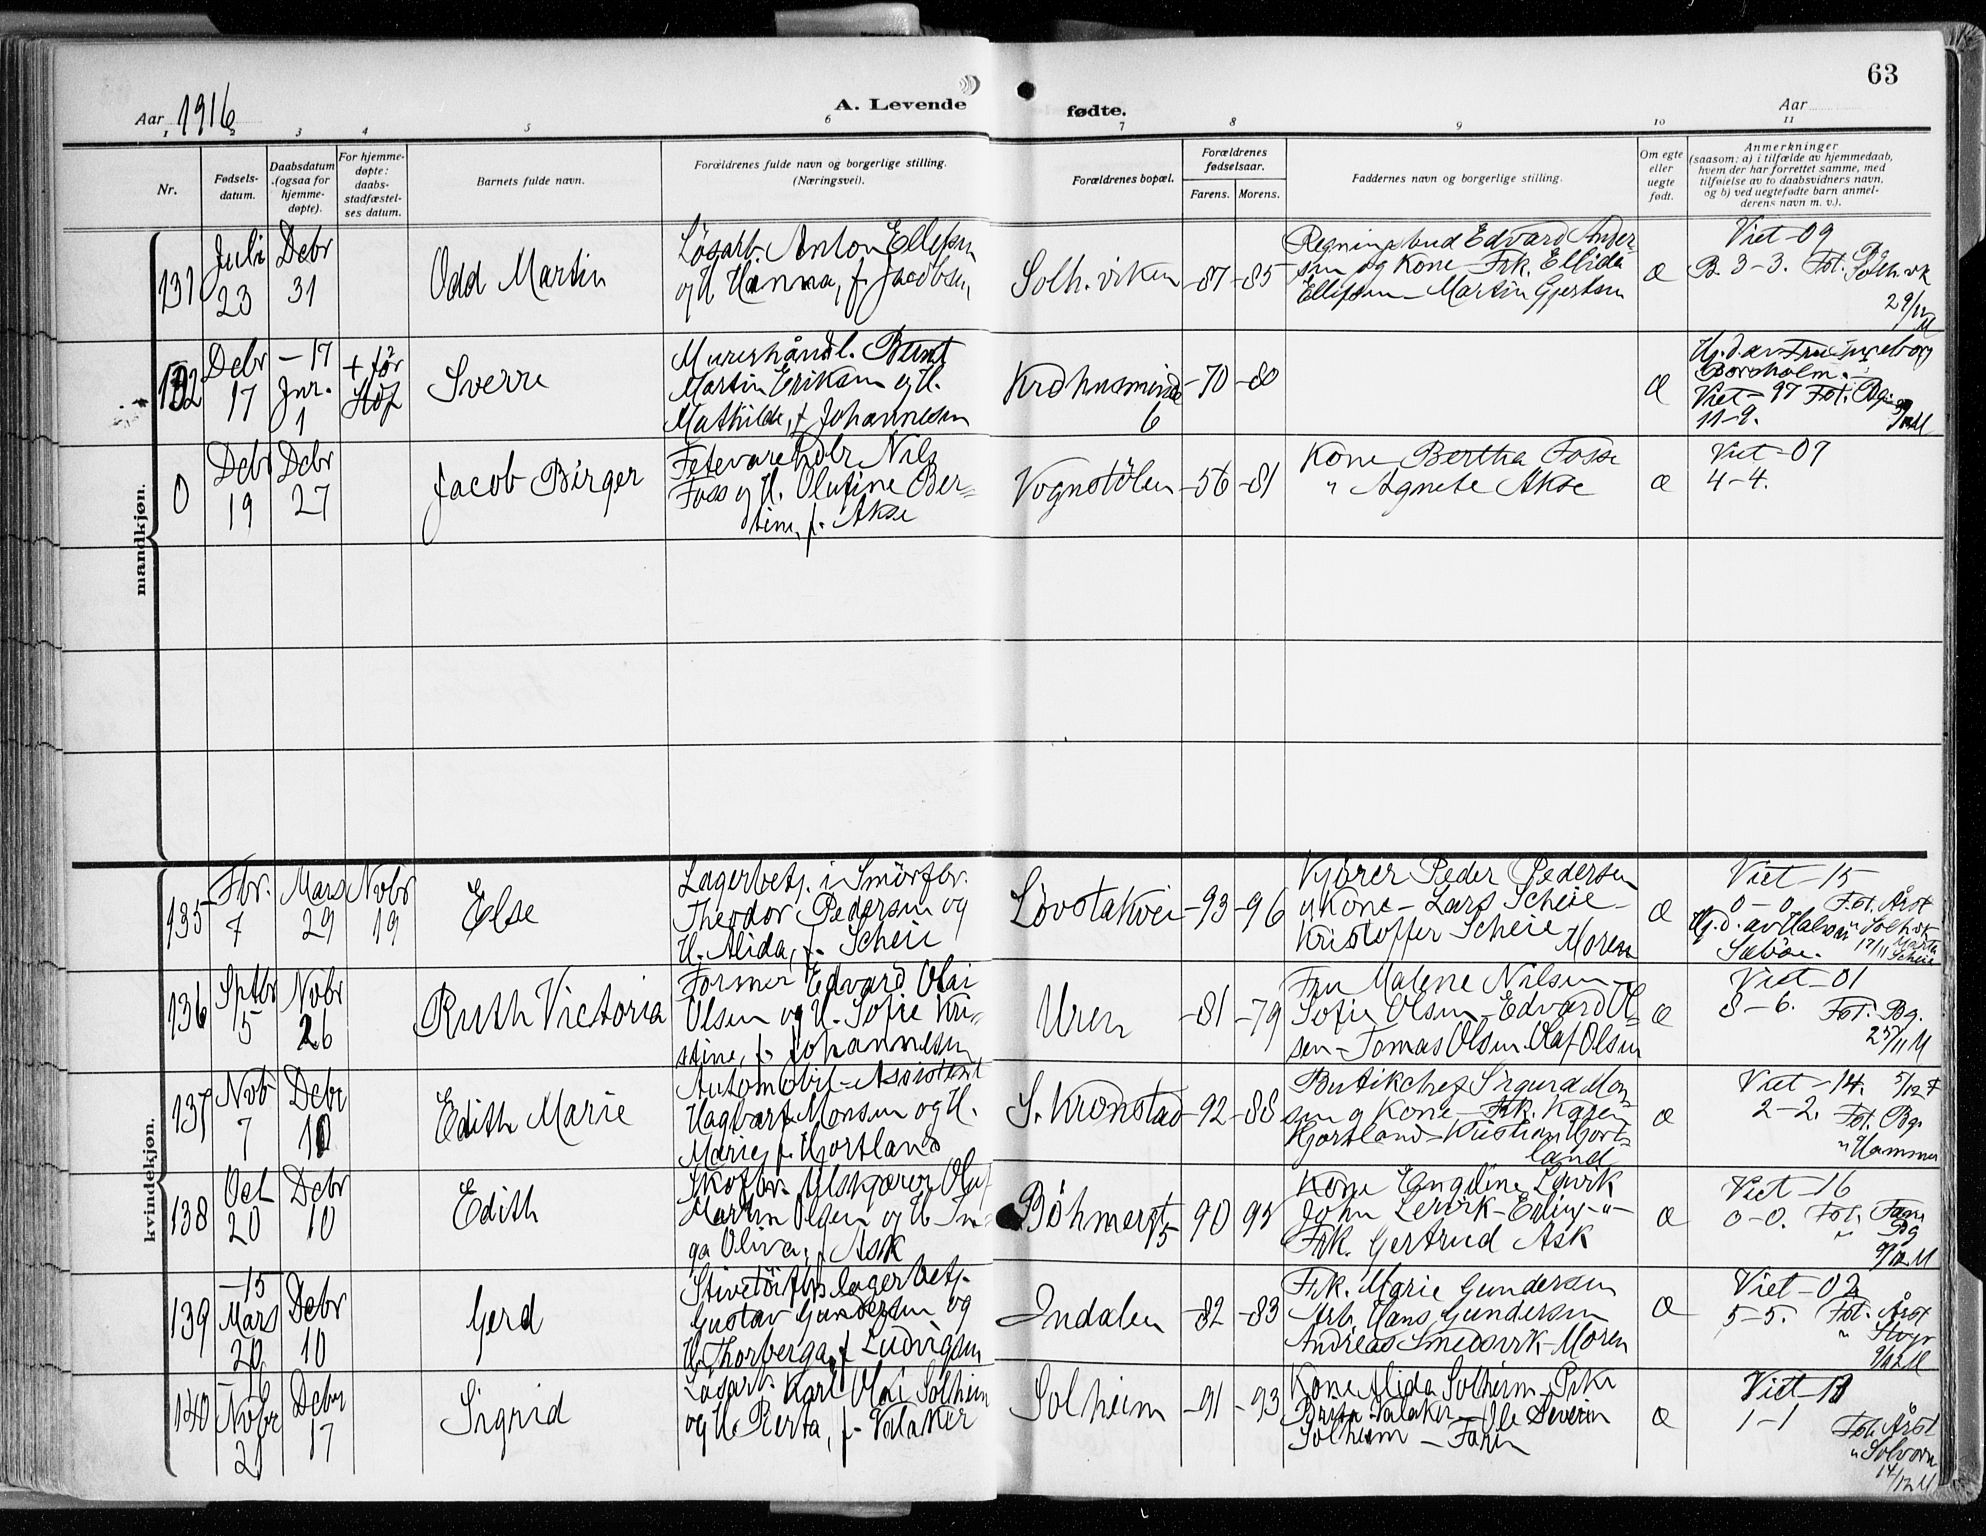 63
Aar 1916
A. Levende
fødte.
Aar
1 2 3 4 5 6 7 8 9 10 11
Nr.
Fødsels-
datum.
Daabsdatum
(ogsaa for
hjemme-
døpte).
For hjemme-
døpte:
daabs-
stadfæstel-
ses datum.
Barnets fulde navn.
Forældrenes fulde navn og borgerlige stilling.
(Næringsvei).
Forældrenes bopæl.
Forældrenes
fødselsaar.
Farens. Morens.
Faddernes navn og borgerlige stilling.
Om egte
eller
uegte
født.
Anmerkninger
(saasom: a) i tilfælde av hjemmedaab,
hvem der har forrettet samme, med
tilføielse av to daabsvidners navn,
og b) ved uegtefødte barn anmel-
derens navn m. v.).
mandkjøn.
131
Juli
23
Debr
31
Odd Martin
Løsarb. Anton Ellefsen
og H. Hanna, f. Jacobsen
Solh.viken
-87
-85
Regningsbud Edvard Ander-
sen og Kone - Frk. Elfida
Ellefsen - Martin Gjertsen
æ
Viet -09
B. 3-3. Fot. Bg
Solh.vk
29/12
M
132
Debr
17
-17
Jnr.
1
+ før
Hof
Sverre
Murershåndl. Bernt
Martin Eriksen og H.
Mathilde, f. Johannesen
Krohnsminde
6
-70
-80
æ
Hj.d. av Fru Ingeborg
Borsholm.
Viet -97 Fot. Bg.
11-9.
0
Debr
19
Debr
27
Jacob Birger
Fetevarehdlr Nils
Foss og H. Olufine Ber-
tine, f. Akse
Vognstölen
-56
-81
Kone Bertha Fosse
" Agnete Akse
æ
Viet -07
4-4.
kvindekjøn.
135
Fbr.
7
Mars
29
Novbr
19
Else
Lagerbetj. i Smörfor.
Theodor Pedersen og
H. Alida, f. Scheie
Lövstakvei
-93
-96
Kjører Peder Pedersen
og Kone - Lars Scheie -
Kristoffer Scheie
Moren
æ
Viet -15
0-0. Fot. Årst
Hj.d. av Halvor " Solh.vk
Sæbøe. 17/11 Marta
Scheie
136
Sptbr
15
Novbr
26
Ruth Victoria
Former Edvard Olai
Olsen og H. Sofie Kri-
stine, f. Johannesen
Uren
-81
-79
Fru Malene Nilsen
Sofie Olsen - Edvard Ol-
sen - Tomas Olsen Olaf Olsen
æ
Viet -01
8-6. Fot. Bg.
25/11 M
137
Nov
7
Debr
10
Edith Marie
Automobil-Assistent
Hagbart Monsen og H.
Marie, f. Hjortland
S. Kronstad
-92
-88
Butikchef Sigurd Mon-
sen og Kone - Frk. Karen
Hjortland - Kristian Hjort-
land
æ
Viet -14. 5/12 F
2-2. Fot. Bg.
" Hammer
138
Oct
20
Debr
10
Edith
Skofbr. Tilskjærer Olaf
Martin Olsen og H. In-
ga Oliva, f. Ask
Böhmergt
15
-90
-95
Kone Engeline Lervik
John Lervik - Erling -"-
Frk. Gertrud Ask
æ
Viet -16
0-0. Fot. Fane
" Bg
9/12 M
139
-15
Mars
20
Debr
10
Gerd
Stivetöifbr. lagerbetj.
Gustav Gundersen og
H. Thorberga, f. Ludvigsen
Indalen
-82
-83
Frk. Marie Gundersen
Arb. Hans Gundersen
Andreas Smedsvik - Moren
æ
Viet -02
5-5. Fot. Årst
9/12 M
140
-16
Novbr
21
Debr
17
Sigrid
Løsarb. Karl Olai Solheim
og H. Berta, f. Valaker
Solheim
-91
-93
Kone Alida Solheim - Pike
Brita Valaker - Ole Severin
Solheim - Faren
æ
Viet -11
1-1
Fot. Årst
" Solvorn
14/12 M